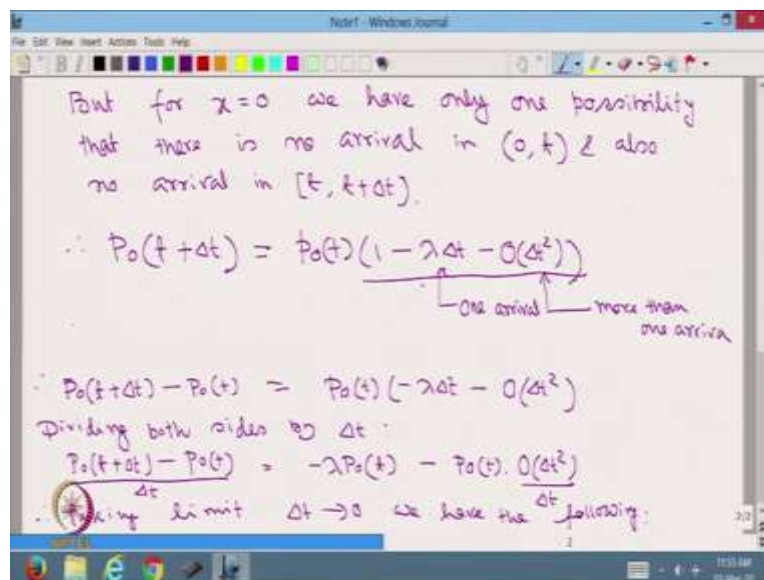 Note1 - Windows Journal
File Edit View Insert Actions Tools Help
But for x=0 we have only one possibility
that there is no arrival in (0, t) & also
no arrival in [t, t+Δt).
∴ P₀(t+Δt) = P₀(t)(1 - λΔt - O(Δt²))
One arrival more than
one arriva
∴ P₀(t+Δt) - P₀(t) = P₀(t)(-λΔt - O(Δt²)
Dividing both sides by Δt.
P₀(t+Δt) - P₀(t) / Δt = -λP₀(t) - P₀(t). O(Δt²) / Δt
∴ Taking limit Δt→0 we have the following:
2
2/2
11:55 AM